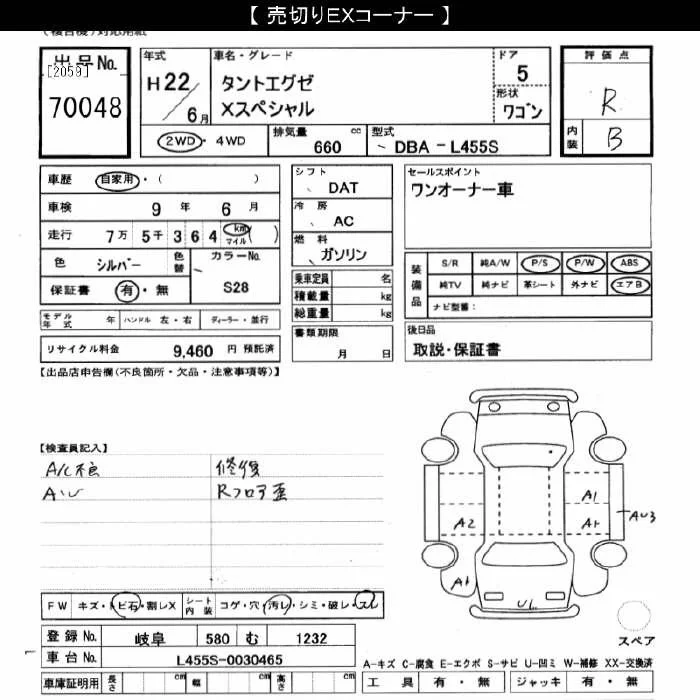 【 売切りEXコーナー 】
(複合機)対応用紙
出品No.
[2059]
70048
年式
H22/6月
車名・グレード
タントエグゼ
Xスペシャル
ドア
5
形状
ワゴン
評価点
R
内装
B
2WD・4WD
排気量
660 cc
型式
DBA - L455S
車歴 自家用・( )
車検 9 年 6 月
走行 7万 5千 3 6 4 km マイル ( )
色 シルバー 色替
カラーNo.
S28
保証書 有・無
シフト
DAT
冷房
AC
燃料
ガソリン
乗車定員 名
積載量 kg
総重量 kg
書類期限
月 日
セールスポイント
ワンオーナー車
装備品
S/R 純A/W P/S P/W ABS
純TV 純ナビ 革シート 外ナビ エアB
ナビ型番:
後日品
取説・保証書
モデル年式 年 ハンドル 左・右 ディーラー・並行
リサイクル料金 9,460 円 預託済
【出品店申告欄(不良箇所・欠品・注意事項等)】
【検査員記入】
A/C不良
修復
AU
Rフロア歪
A1
A2
A1
AU3
A1
UL
FW キズ・トビ石・割レX
シート内装 コゲ・穴・汚レ・シミ・破レ・スレ
登録No. 岐阜 580 む 1232
車台No. L455S-0030465
車庫証明用 長さ cm 幅 cm 高さ cm
スペア
A-キズ C-腐食 E-エクボ S-サビ U-凹ミ W-補修 XX-交換済
工具 有・無 ジャッキ 有・無